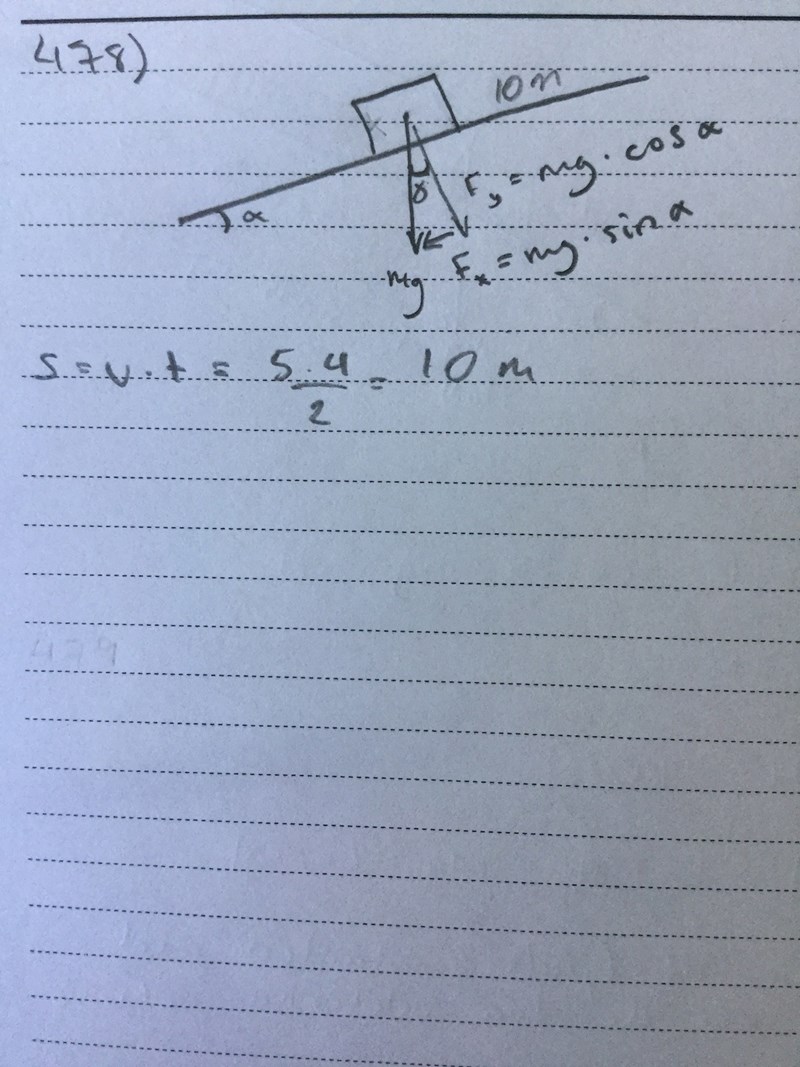 478)
10 m
α
γ
Fy = mg · cos α
Fx = mg · sin α
mg
s = v · t = 5·4/2 = 10 m
479